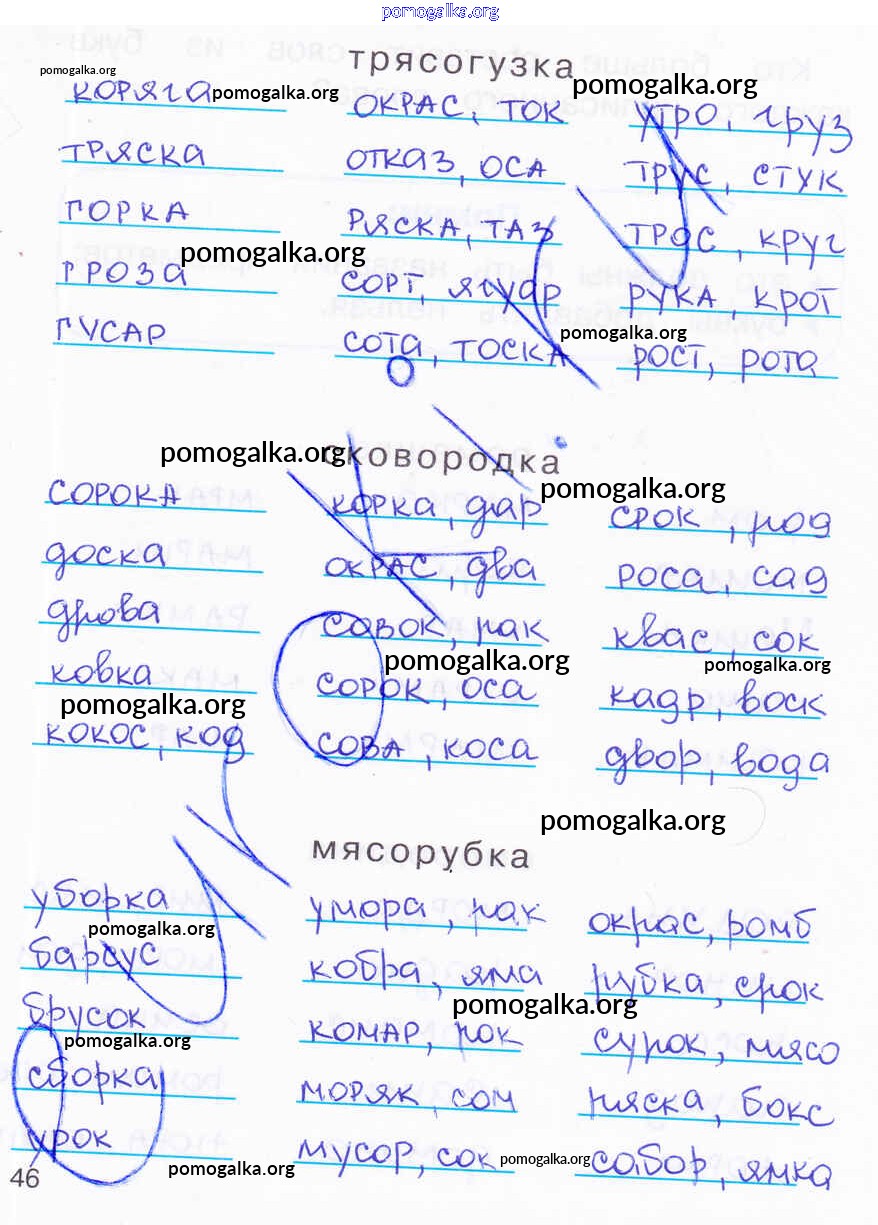 pomogalka.org
трясогузка
pomogalka.org
коряга pomogalka.org окрас, ток pomogalka.org утро, груз
тряска отказ, оса трус, стук
горка ряска, таз трос, круг
pomogalka.org
гроза сорт, ягуар рука, крот
pomogalka.org
гусар сота, тоска рост, рота
сковородка
pomogalka.org
pomogalka.org
сорока корка, дар срок, род
доска окрас, два роса, сад
дрова совок, рак квас, сок
pomogalka.org pomogalka.org
ковка сорок, оса кадр, воск
pomogalka.org
кокос, код сова, коса двор, вода
pomogalka.org
мясорубка
уборка умора, рак окрас, ромб
pomogalka.org
барсус кобра, яма рубка, срок
pomogalka.org
брусок комар, рок сурок, мясо
pomogalka.org
сборка моряк, сом ряска, бокс
урок мусор, сок pomogalka.org собор, ямка
46 pomogalka.org